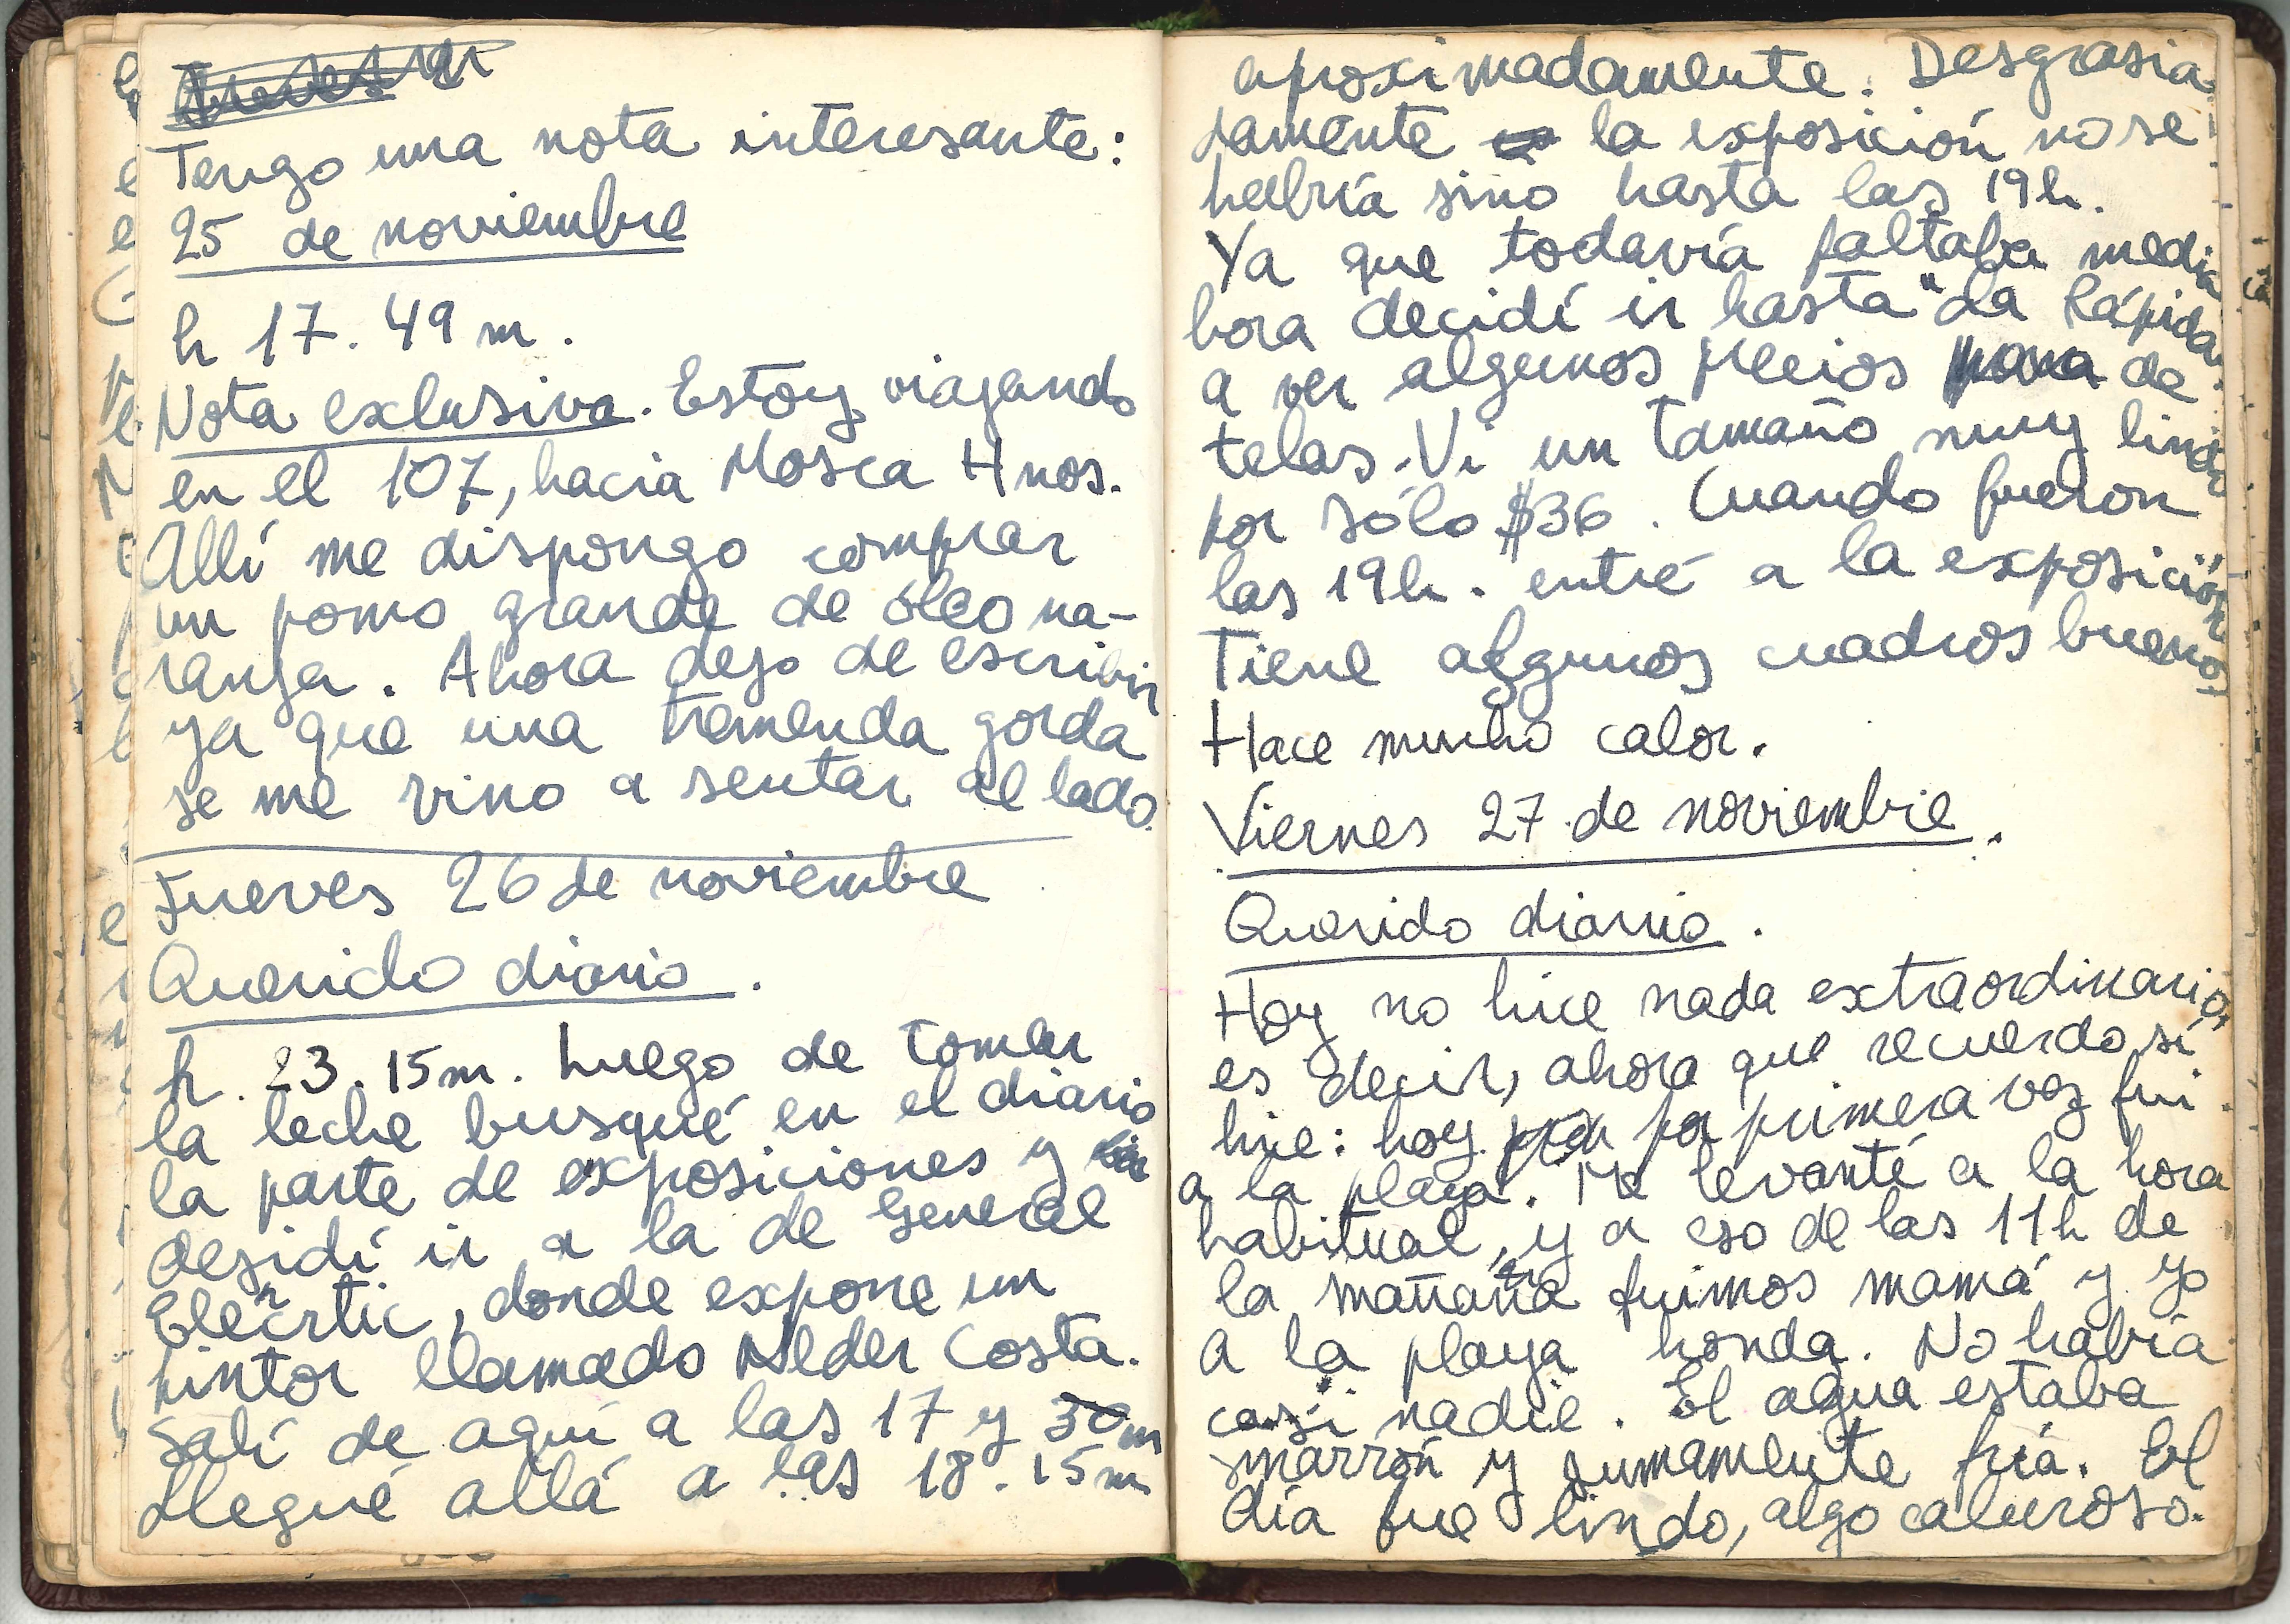 Tengo una nota interesante:
25 de noviembre
h 17. 49 m.
Nota exclusiva. Estoy viajando
en el 107, hacia Mosca Hnos.
Allí me dispongo comprar
un pomo grande de óleo na-
ranja. Ahora dejo de escribir
ya que una tremenda gorda
se me vino a sentar al lado.
Jueves 26 de noviembre
Querido diario.
h. 23. 15m. Luego de tomar
la leche busqué en el diario
la parte de exposiciones y
desidí ir a la de General
Eléctric, donde expone un
pintor llamado Nelder Costa.
Salí de aquí a las 17 y 30m
Llegué allá a las 18. 15m
aproximadamente. Desgrasia-
damente la exposición no se
habría sino hasta las 19h.
Ya que todavía faltaba media
hora decidí ir hasta "La Rápida"
a ver algunos precios de
telas. Vi un tamaño muy lindo
por sólo $36. Cuando fueron
las 19h. entré a la exposición
Tiene algunos cuadros buenos
Hace mucho calor.
Viernes 27 de noviembre.
Querido diario.
Hoy no hice nada extraordinario,
es decir, ahora que recuerdo sí
hice: hoy por primera vez fui
a la playa. Me levanté a la hora
habitual, y a eso de las 11h de
la mañana fuimos mamá y yo
a la playa honda. No había
casi nadie. El agua estaba
marrón y sumamente fría. El
día fue lindo, algo caluroso.